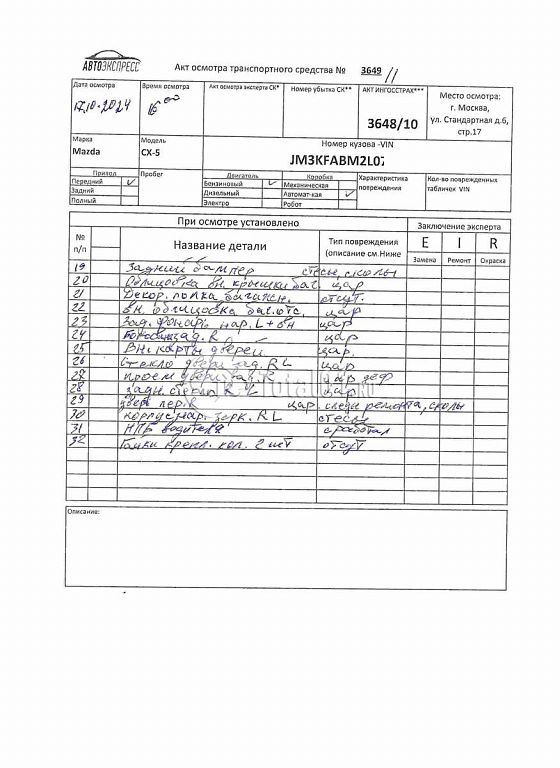 АВТОЭКСПРЕСС
Акт осмотра транспортного средства № 3649/11
Дата осмотра Время осмотра Акт осмотра эксперта СК* Номер убытка СК** АКТ ИНГОССТРАХ*** Место осмотра:
17.10.2024 16 00 3648/10 г. Москва,
ул. Стандартная д.6,
стр.17
Марка Модель Номер кузова -VIN
Mazda CX-5 JM3KFABM2L0
Привод Пробег Двигатель Коробка Характеристика повреждения Кол-во поврежденных табличек VIN
Передний ✓ Бензиновый ✓ Механическая
Задний Дизельный Автомат-кая ✓
Полный Электро Робот
При осмотре установлено Заключение эксперта
№ п/п Название детали Тип повреждения (описание см.Ниже E I R
Замена Ремонт Окраска
19 Задний бампер стесы, сколы
20 Облицовка вн. крышки баг. цар
21 Декор. полка багажн. отсут.
22 вн. облицовка баг. отс. цар
23 Зад. фонарь нар. L + вн цар
24 зад. R цар
25 Вн. карты дверей цар.
26 Стекло двери зад. RL цар
27 проем двери зад. R цар деф
28 задн. стекло R L цар
29 дверь пер. R цар. следы ремонта, сколы
30 корпус нар. зерк. RL стесы
31 НПБ водителя сработал
32 Гайки крепл. кол. 2 шт отсут
Описание: